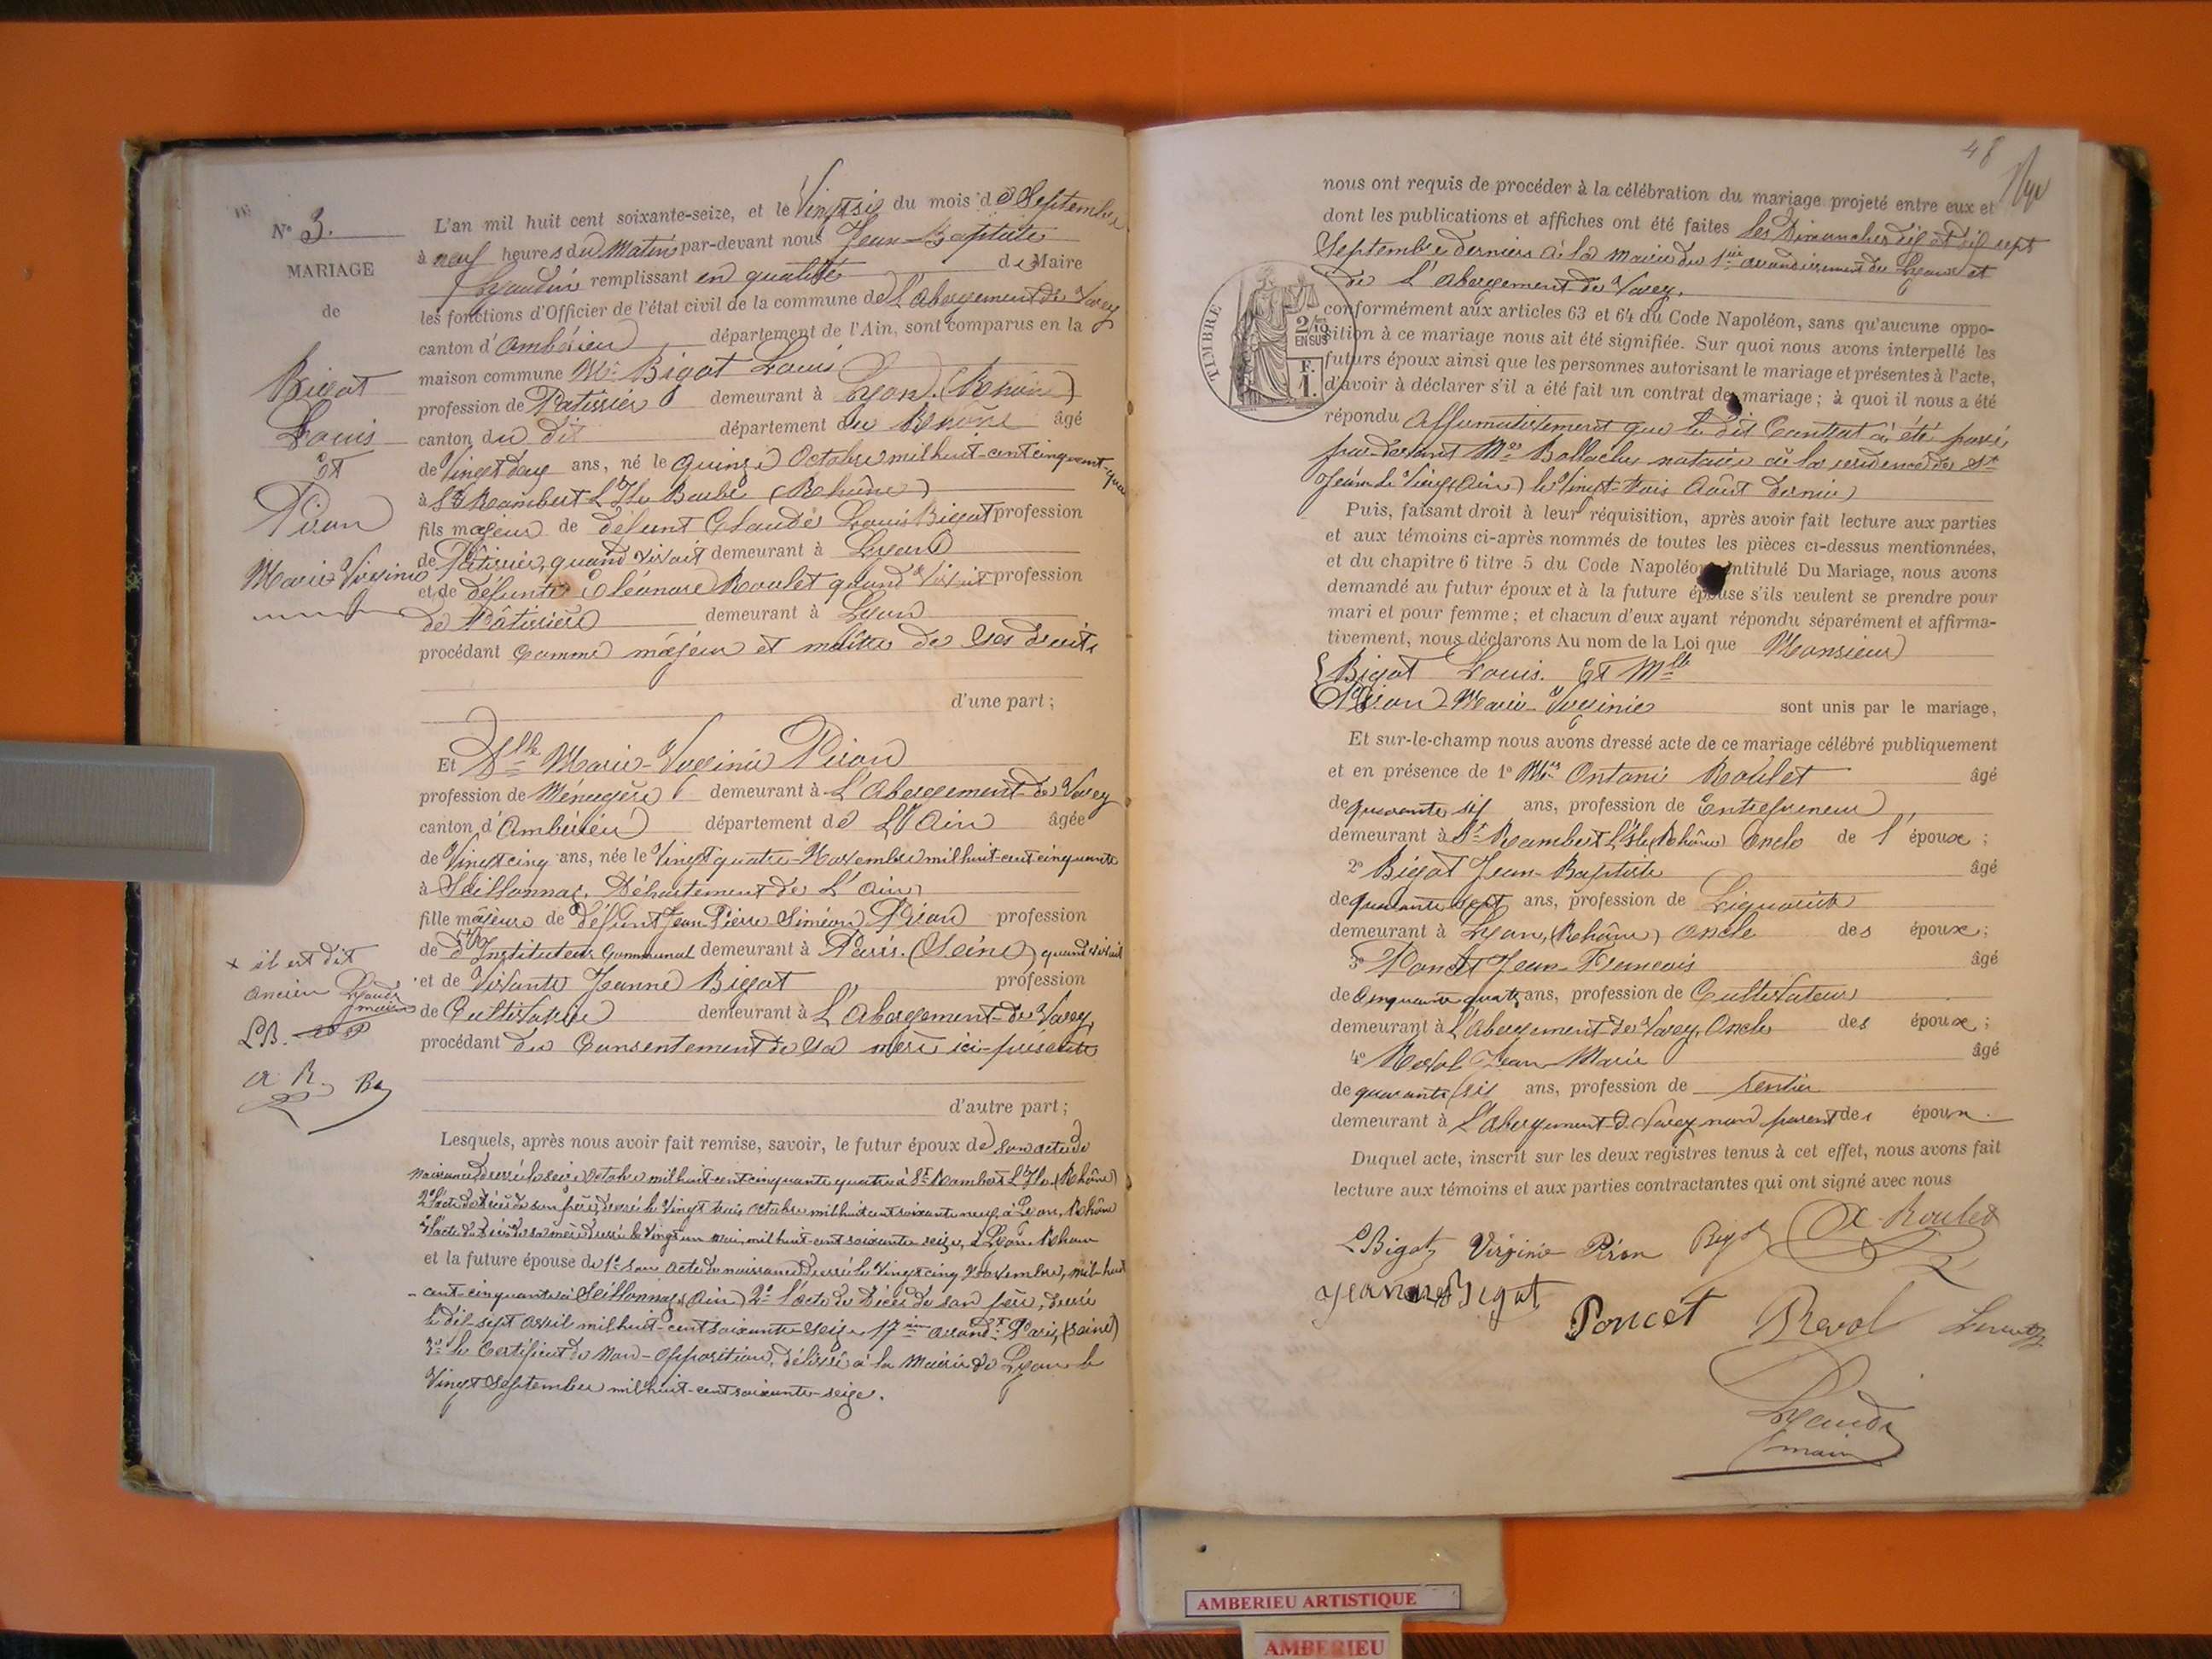 N° 3.
MARIAGE
de
Bigot
Louis
Et
Piron
Marie Virginie
L'an mil huit cent soixante-seize, et le Vingt six du mois de Septembre
à neuf heures du Matin par-devant nous Jean-Baptiste
Lyaudin remplissant en qualité de Maire
les fonctions d'Officier de l'état civil de la commune de L'Abergement de Varey
canton d'Ambérieu département de l'Ain, sont comparus en la
maison commune Mr Bigot Louis
profession de Patissier demeurant à Lyon (Rhône)
canton du dit département du Rhône âgé
de Vingt deux ans, né le Quinze Octobre mil huit-cent cinquant-quatre
à St Rambert L'Ile Barbe (Rhône)
fils majeur de défunt Claude Louis Bigot profession
de Pâtissier, quand vivait demeurant à Lyon
et de défunte Eléonore Roulet quand vivait profession
de Pâtissière demeurant à Lyon
procédant comme majeur et maître de ses droits
d'une part ;
Et Dlle Marie-Virginie Piron
profession de Ménagère demeurant à L'Abergement-de Varey
canton d'Ambérieu département de L'Ain âgée
de Vingt cinq ans, née le Vingt quatre-Novembre mil huit-cent cinquante
à Seillonnaz, Département de L'Ain
fille majeure de défunt Jean Pierre Siméon Piron profession
de Instituteur Communal demeurant à Paris. (Seine) quand vivait
et de Vivante Jeanne Bigot profession
de Cultivatrice demeurant à L'Abergement-de Varey,
procédant du Consentement de sa mère ici-présente
d'autre part ;
+ il est dit
ancien
L.B.
A R. Bg
Lesquels, après nous avoir fait remise, savoir, le futur époux de son acte de
naissance dressé le seize Octobre mil huit-cent cinquante quatre à St Rambert L'Ile (Rhône)
2° l'acte de Décès de son père, dressé le Vingt trois Octobre mil huit cent soixante neuf, à Lyon, Rhône
3° l'acte de Décès de sa mère dressé le Vingt un mai, mil huit-cent soixante seize, à Lyon Rhône
et la future épouse de 1° Son acte de naissance dressé le Vingt cinq Novembre, mil-huit
-cent-cinquante à Seillonnaz (Ain) 2° l'acte de Décès de son père, dressé
le dix-sept Avril mil huit-cent soixante-seize 17ème arrondt Paris, (Seine)
3° le Certificat de Non-Opposition, délivré à la Mairie de Lyon le
Vingt Septembre mil huit-cent soixante-seize.
48
nous ont requis de procéder à la célébration du mariage projeté entre eux et
dont les publications et affiches ont été faites les Dimanches dix et dix sept
Septembre derniers à la Mairie du 1er arrondissement de Lyon et
de L'Abergement de Varey.
conformément aux articles 63 et 64 du Code Napoléon, sans qu'aucune oppo-
sition à ce mariage nous ait été signifiée. Sur quoi nous avons interpellé les
futurs époux ainsi que les personnes autorisant le mariage et présentes à l'acte,
d'avoir à déclarer s'il a été fait un contrat de mariage ; à quoi il nous a été
répondu Affirmativement que le dit Contrat a été passé
par-devant Me notaire à la résidence de St
Jean-le Vieux (Ain) le Vingt-trois Août dernier
TIMBRE
2/10
EN SUS
F.
1.
Puis, faisant droit à leur réquisition, après avoir fait lecture aux parties
et aux témoins ci-après nommés de toutes les pièces ci-dessus mentionnées,
et du chapitre 6 titre 5 du Code Napoléon intitulé Du Mariage, nous avons
demandé au futur époux et à la future épouse s'ils veulent se prendre pour
mari et pour femme ; et chacun d'eux ayant répondu séparément et affirma-
tivement, nous déclarons Au nom de la Loi que Monsieur
Bigot Louis. Et Mlle
Piron Marie-Virginie sont unis par le mariage,
Et sur-le-champ nous avons dressé acte de ce mariage célébré publiquement
et en présence de 1° Mr Antoine Roulet âgé
de quarante six ans, profession de Entrepreneur
demeurant à St-Rambert L'Ile (Rhône) Oncle de l'époux ;
2° Bigot Jean-Baptiste âgé
de quarante sept ans, profession de Liquoriste
demeurant à Lyon, (Rhône) Oncle des époux ;
3° Poncet Jean-François âgé
de Cinquante quatre ans, profession de Cultivateur
demeurant à L'Abergement-de Varey, Oncle des époux ;
4° Revol Jean Marie âgé
de quarante six ans, profession de rentier
demeurant à L'Abergement-de Varey non parent des époux.
Duquel acte, inscrit sur les deux registres tenus à cet effet, nous avons fait
lecture aux témoins et aux parties contractantes qui ont signé avec nous
L Bigot Virginie Piron Bigot A. Roulet
Jeanne Bigot
Poncet Revol
Lyaudin
maire
AMBERIEU ARTISTIQUE
AMBERIEU